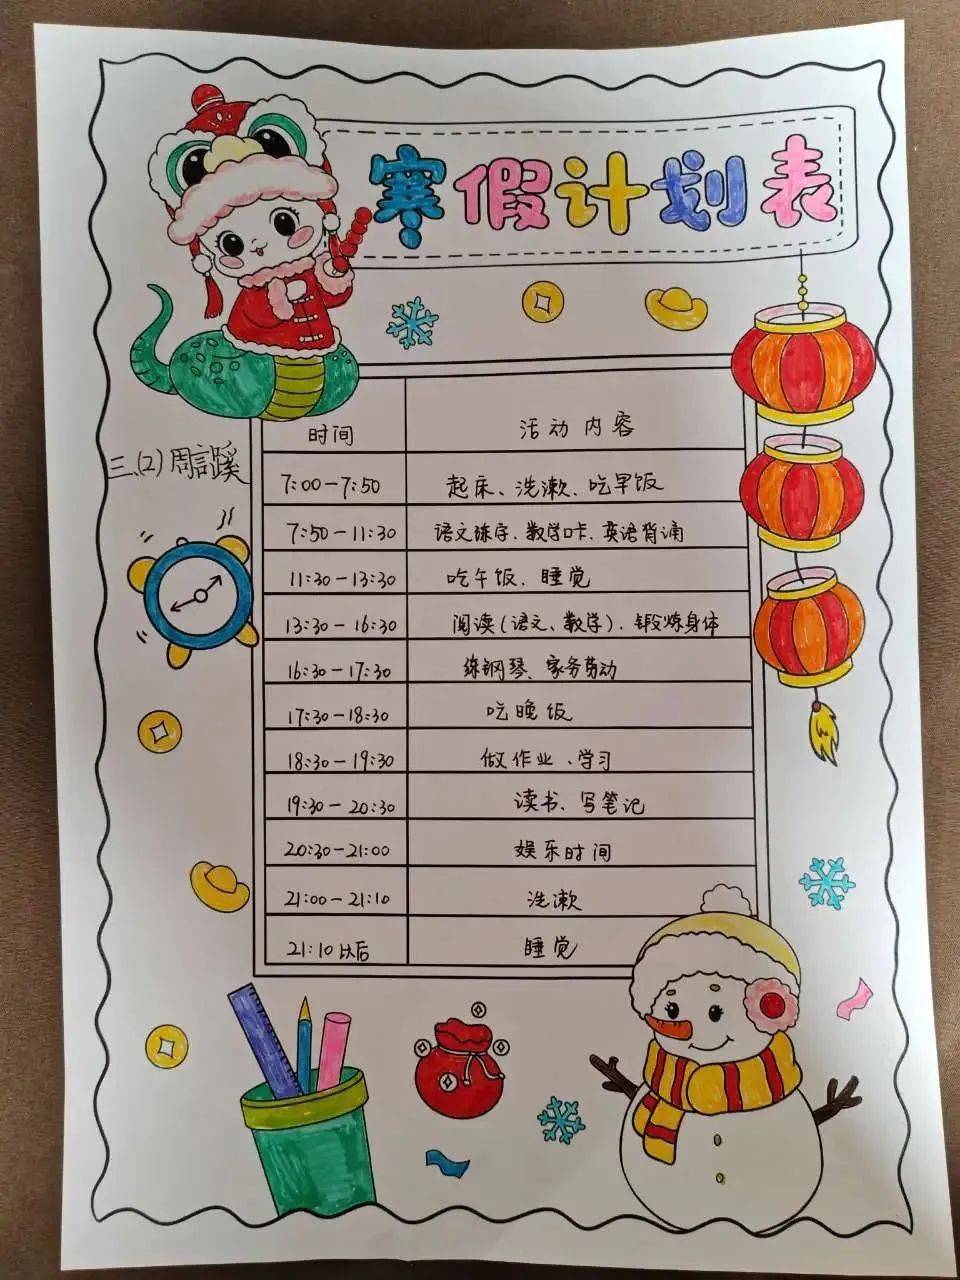 寒假计划表
时间 活动内容
三、(2) 周言蹊
7:00-7:50 起床、洗漱、吃早饭
7:50-11:30 语文练字、数学口卡、英语背诵
11:30-13:30 吃午饭、睡觉
13:30-16:30 阅读(语文、数学)、锻炼身体
16:30-17:30 练钢琴、家务劳动
17:30-18:30 吃晚饭
18:30-19:30 做作业、学习
19:30-20:30 读书、写笔记
20:30-21:00 娱乐时间
21:00-21:10 洗漱
21:10以后 睡觉